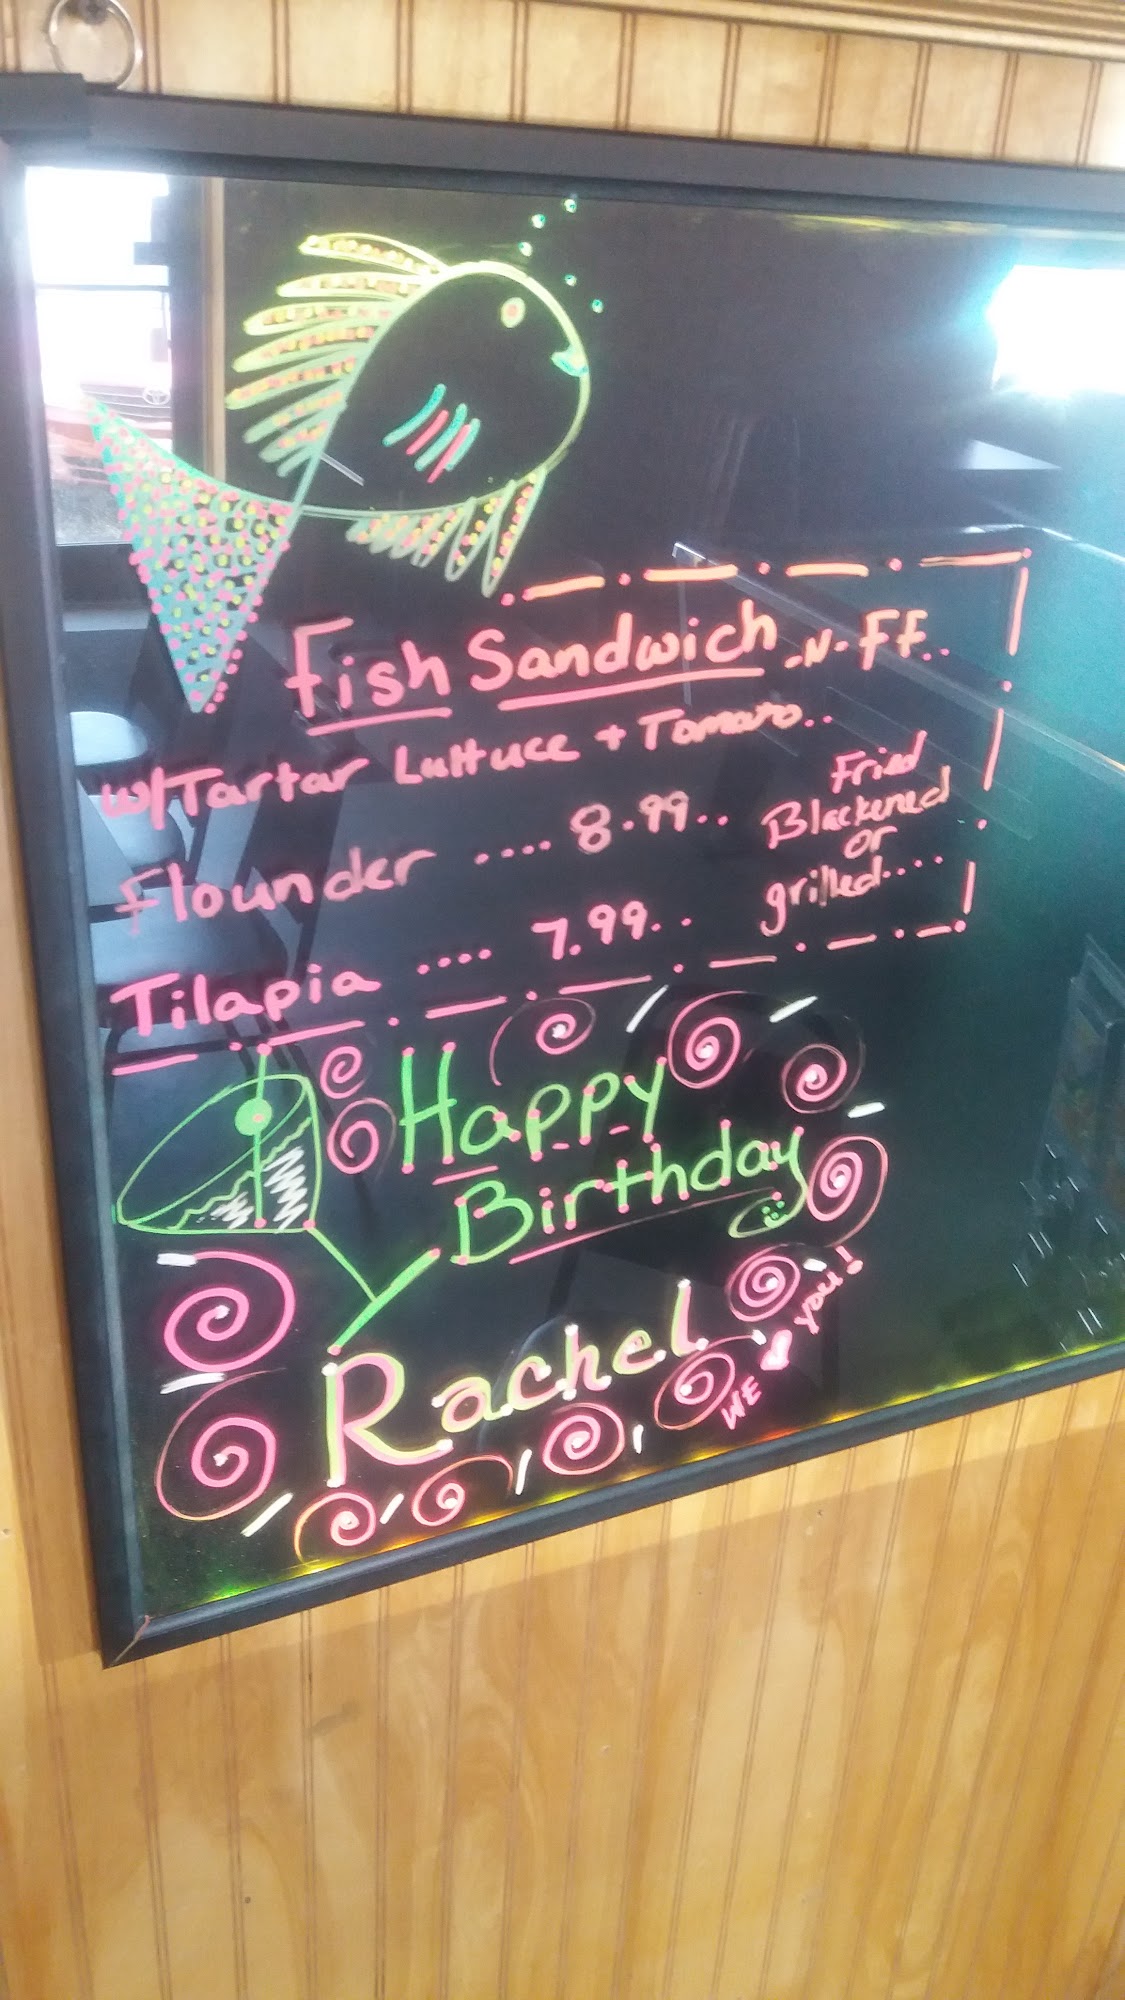 Fish Sandwich -N- FF..
w/Tartar Luttuce + Tomato..
Flounder .... 8.99..
Tilapia .... 7.99..
Fried
Blackened
or
grilled....
Happy
Birthday
Rachel
WE ♥ you!